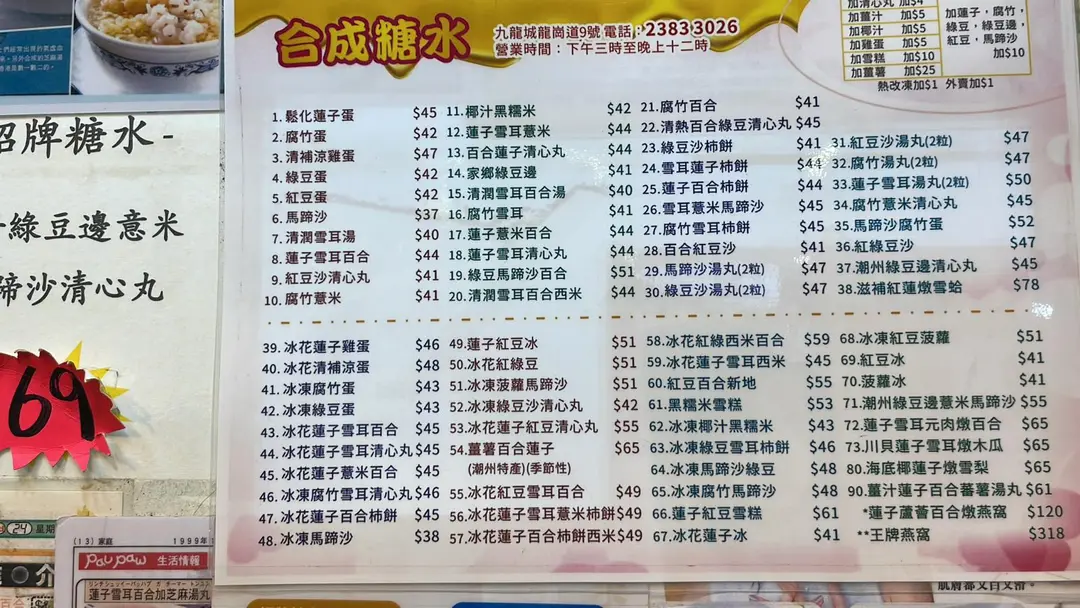 合成糖水
九龍城龍崗道9號 電話：2383 3026
營業時間：下午三時至晚上十二時
加清心丸 加$4
加薑汁 加$5
加椰汁 加$5
加雞蛋 加$5
加雪糕 加$10
加薑薯 加$25
加蓮子，腐竹，
綠豆，綠豆邊，
紅豆，馬蹄沙
加$10
熱改凍加$1 外賣加$1
1. 鬆化蓮子蛋 $45
2. 腐竹蛋 $42
3. 清補涼雞蛋 $47
4. 綠豆蛋 $42
5. 紅豆蛋 $42
6. 馬蹄沙 $37
7. 清潤雪耳湯 $40
8. 蓮子雪耳百合 $44
9. 紅豆沙清心丸 $41
10. 腐竹薏米 $41
11. 椰汁黑糯米 $42
12. 蓮子雪耳薏米 $44
13. 百合蓮子清心丸 $44
14. 家鄉綠豆邊 $41
15. 清潤雪耳百合湯 $40
16. 腐竹雪耳 $41
17. 蓮子薏米百合 $44
18. 蓮子雪耳清心丸 $44
19. 綠豆馬蹄沙百合 $51
20. 清潤雪耳百合西米 $44
21. 腐竹百合 $41
22. 清熱百合綠豆清心丸 $45
23. 綠豆沙柿餅 $41
24. 雪耳蓮子柿餅 $44
25. 蓮子百合柿餅 $44
26. 雪耳薏米馬蹄沙 $45
27. 腐竹雪耳柿餅 $45
28. 百合紅豆沙 $41
29. 馬蹄沙湯丸(2粒) $47
30. 綠豆沙湯丸(2粒) $47
31. 紅豆沙湯丸(2粒) $47
32. 腐竹湯丸(2粒) $47
33. 蓮子雪耳湯丸(2粒) $50
34. 腐竹薏米清心丸 $45
35. 馬蹄沙腐竹蛋 $52
36. 紅綠豆沙 $47
37. 潮州綠豆邊清心丸 $45
38. 滋補紅蓮燉雪蛤 $78
39. 冰花蓮子雞蛋 $46
40. 冰花清補涼蛋 $48
41. 冰凍腐竹蛋 $43
42. 冰凍綠豆蛋 $43
43. 冰花蓮子雪耳百合 $45
44. 冰花蓮子雪耳清心丸 $45
45. 冰花蓮子薏米百合 $45
46. 冰凍腐竹雪耳清心丸 $46
47. 冰花蓮子百合柿餅 $45
48. 冰凍馬蹄沙 $38
49. 蓮子紅豆冰 $51
50. 冰花紅綠豆 $51
51. 冰凍菠蘿馬蹄沙 $51
52. 冰凍綠豆沙清心丸 $42
53. 冰花蓮子紅豆清心丸 $55
54. 薑薯百合蓮子 $65
(潮州特產)(季節性)
55. 冰花紅豆雪耳百合 $49
56. 冰花蓮子雪耳薏米柿餅 $49
57. 冰花蓮子百合柿餅西米 $49
58. 冰花紅綠西米百合 $59
59. 冰花蓮子雪耳西米 $45
60. 紅豆百合新地 $55
61. 黑糯米雪糕 $53
62. 冰凍椰汁黑糯米 $43
63. 冰凍綠豆雪耳柿餅 $46
64. 冰凍馬蹄沙綠豆 $48
65. 冰凍腐竹馬蹄沙 $48
66. 蓮子紅豆雪糕 $61
67. 冰花蓮子冰 $41
68. 冰凍紅豆菠蘿 $51
69. 紅豆冰 $41
70. 菠蘿冰 $41
71. 潮州綠豆邊薏米馬蹄沙 $55
72. 蓮子雪耳元肉燉百合 $65
73. 川貝蓮子雪耳燉木瓜 $65
80. 海底椰蓮子燉雪梨 $65
90. 薑汁蓮子百合蕃薯湯丸 $61
*蓮子蘆薈百合燉燕窩 $120
**王牌燕窩 $318
招牌糖水-
綠豆邊意米
蹄沙清心丸
69
24 星期
(13) 家庭 1999年
PauPaw 生活情報
蓮子雪耳百合加芝麻湯丸